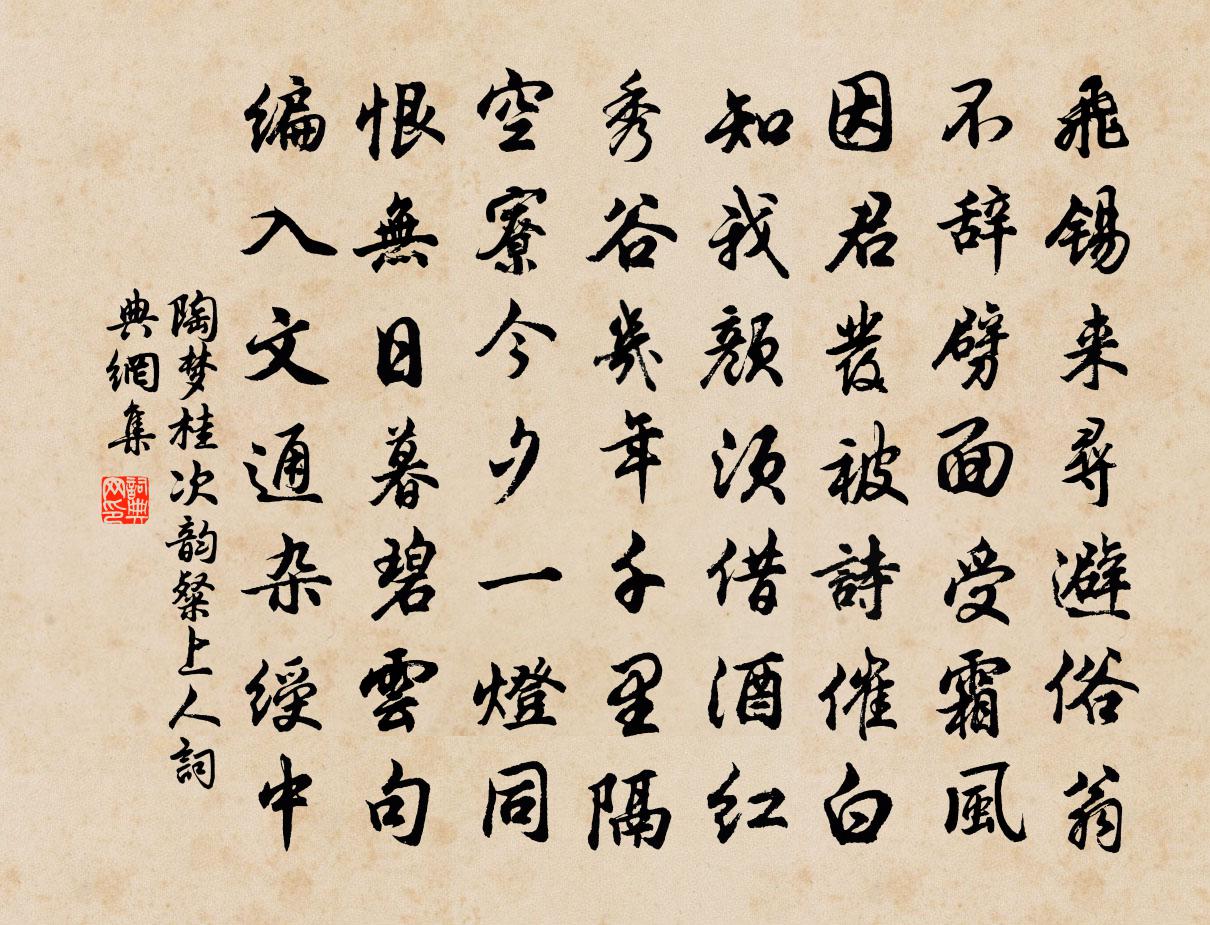 飛錫来尋避俗翁
不辞劈面受霜風
因君發被詩催白
知我顏須借酒紅
秀谷幾年千里隔
空寮今夕一燈同
恨無日暮碧雲句
编入文通杂綬中
陶梦桂次韵粲上人詞
典網集
詞典网印